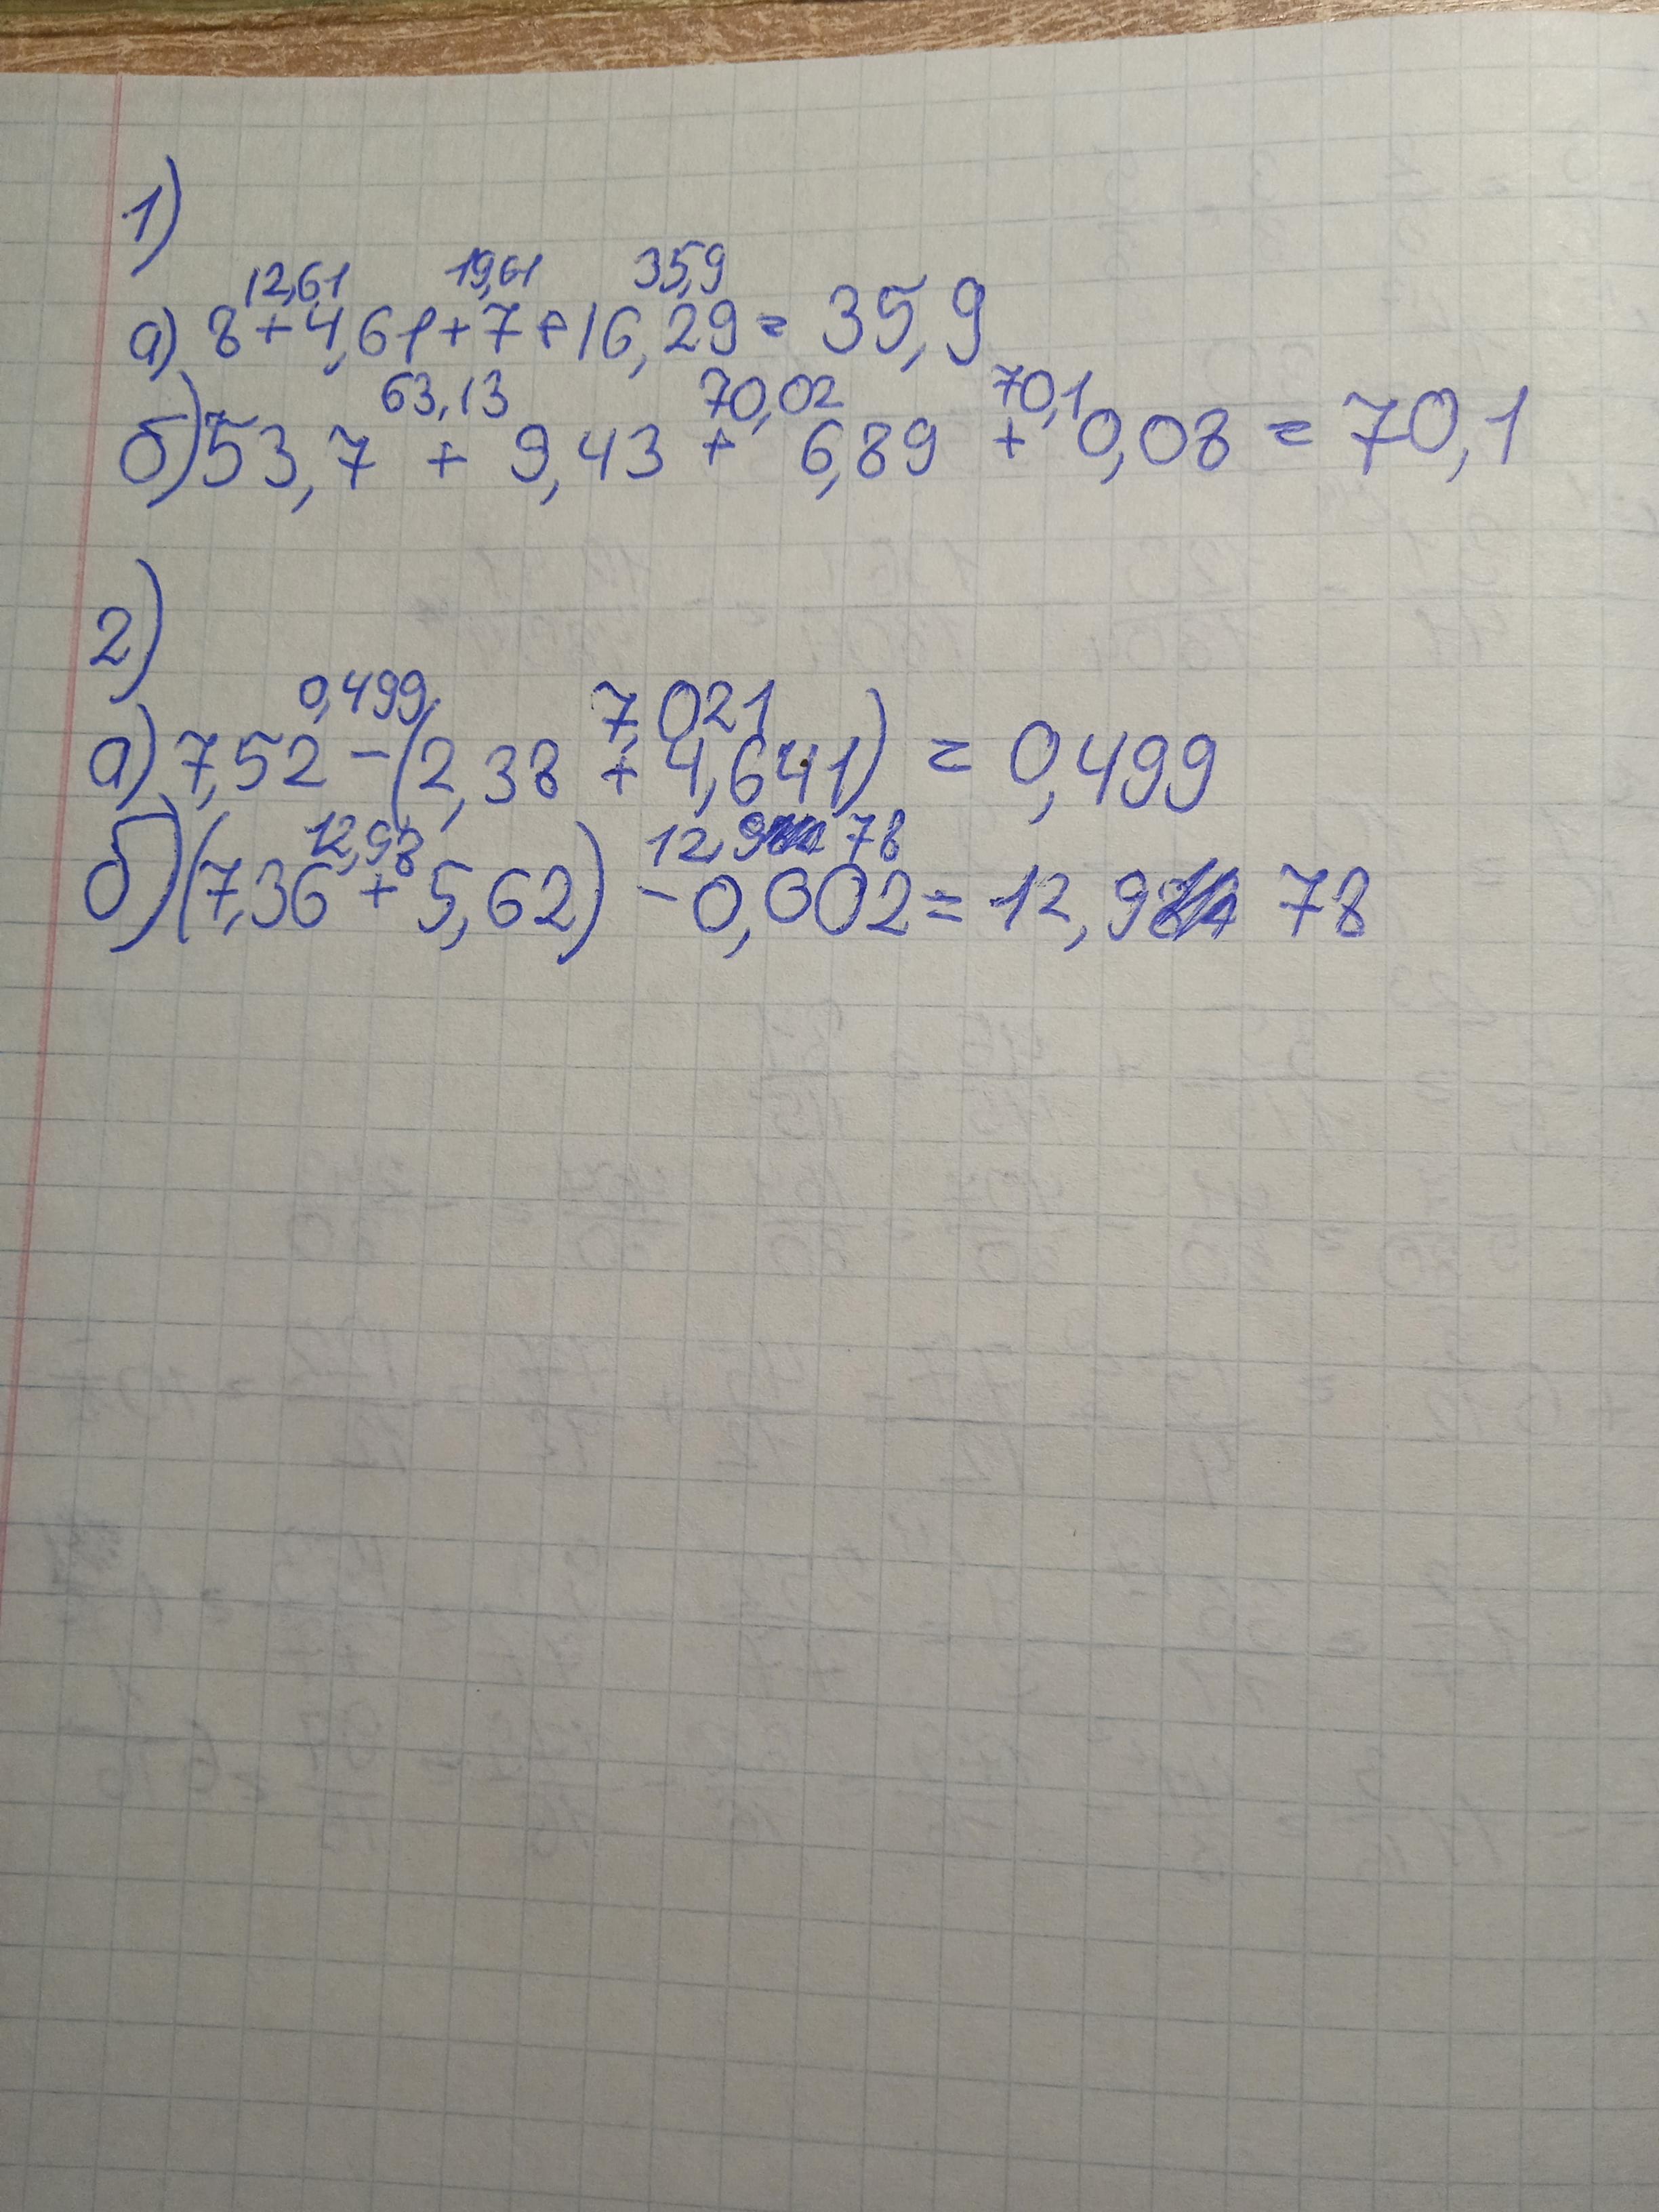 1)
12,61 19,61 35,9
а) 8+4,61+7+16,29= 35,9
63,13 70,02 70,1
б) 53,7 + 9,43 + 6,89 + 0,08 = 70,1
2)
0,499 7,021
а) 7,52 - (2,38 + 4,641) = 0,499
12,98 12,9 78
б) (7,36 + 5,62) - 0,002 = 12,9 78